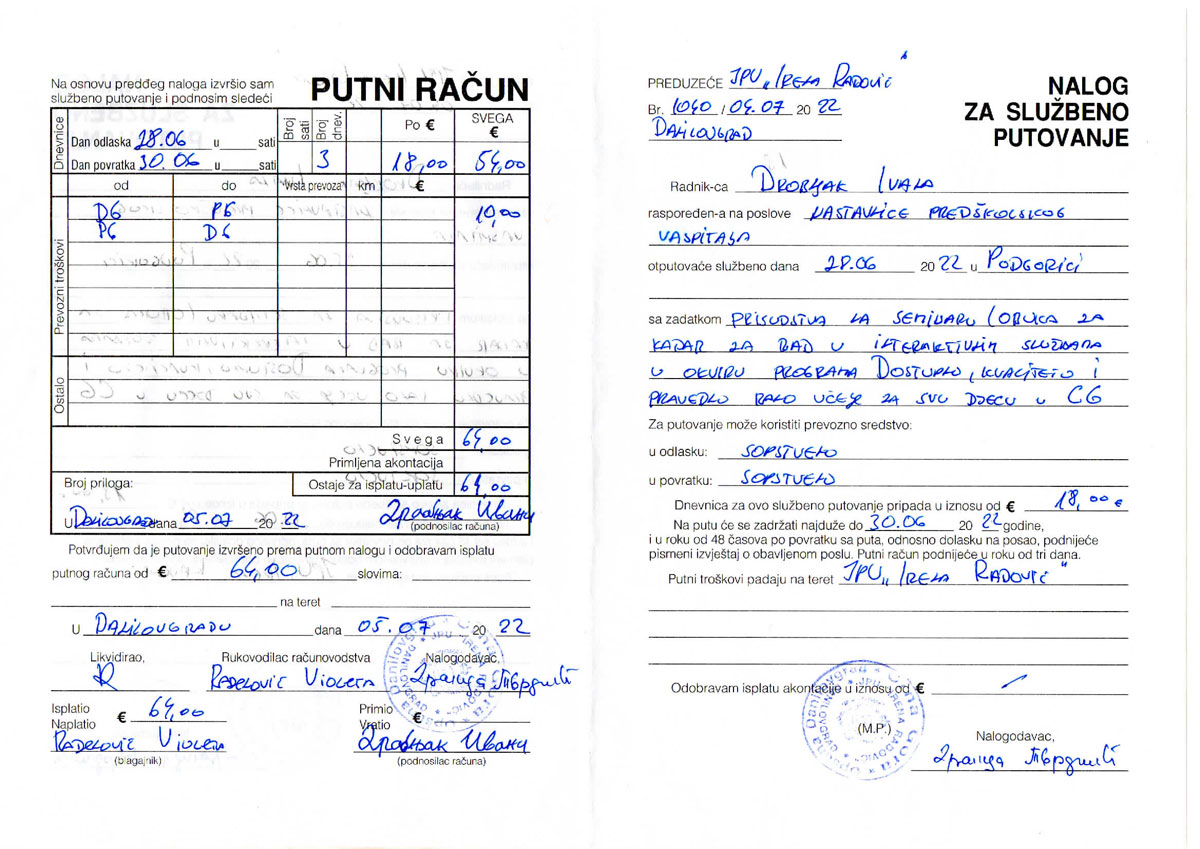 Na osnovu pređđeg naloga izvršio sam
službeno putovanje i podnosim sledeći
PUTNI RAČUN
Dnevnice
Dan odlaska 28.06 u sati
Dan povratka 30.06 u sati
Broj sati
Broj dnev.
Po €
SVEGA €
3 18,00 54,00
od do Vrsta prevoza km €
Prevozni troškovi
DG PG 10,00
PG DG
Ostalo
Svega 64,00
Primljena akontacija
Broj priloga:
Ostaje za isplatu-uplatu 64,00
U Danilovgrad dana 05.07 20 22 Дробњак Ивана
(podnosilac računa)
Potvrđujem da je putovanje izvršeno prema putnom nalogu i odobravam isplatu
putnog računa od € 64,00 slovima:
na teret
U DANILOVGRADU dana 05.07 20 22
Likvidirao, Rukovodilac računovodstva Nalogodavac,
RADELOVIĆ VIOLETA
Isplatio
Naplatio € 64,00
Primio
Vratio €
RADELOVIĆ VIOLETA
(blagajnik)
Дробњак Ивана
(podnosilac računa)
PREDUZEĆE JPU „IRENA RADOVIĆ"
Br. 1040 / 04.07 20 22
DANILOVGRAD
NALOG
ZA SLUŽBENO
PUTOVANJE
Radnik-ca DROBNJAK IVANA
raspoređen-a na poslove NASTAVNICE PREDŠKOLSKOG
VASPITANJA
otputovaće službeno dana 28.06 20 22 u PODGORICI
sa zadatkom PRISUSTVA NA SEMINARU (OBUKA ZA
KADAR ZA RAD U INTERAKTIVNIM SLUŽBAMA
U OKVIRU PROGRAMA DOSTUPNO, KVALITETNO I
PRAVEDNO RANO UČENJE ZA SVU DJECU U CG
Za putovanje može koristiti prevozno sredstvo:
u odlasku: SOPSTVENO
u povratku: SOPSTVENO
Dnevnica za ovo službeno putovanje pripada u iznosu od € 18,00 €
Na putu će se zadržati najduže do 30.06 20 22 godine,
i u roku od 48 časova po povratku sa puta, odnosno dolasku na posao, podnijeće
pismeni izvještaj o obavljenom poslu. Putni račun podnijeće u roku od tri dana.
Putni troškovi padaju na teret JPU „IRENA RADOVIĆ"
Odobravam isplatu akontacije u iznosu od €
(M.P.)
Nalogodavac,